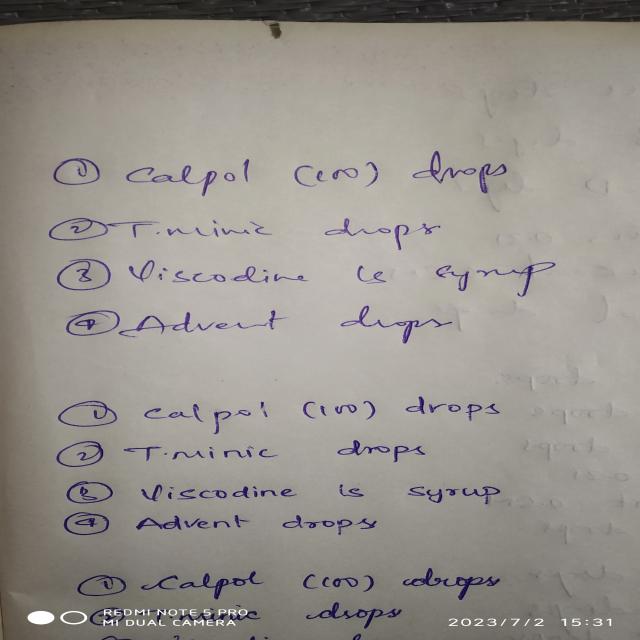 ① Calpol (100) drops
② T.minic drops
③ Viscodine is syrup
④ Advent drops
① Calpol (100) drops
② T.minic drops
③ Viscodine is syrup
④ Advent drops
① Calpol (100) drops
② T.minic drops
REDMI NOTE 5 PRO
MI DUAL CAMERA
2023/7/2 15:31